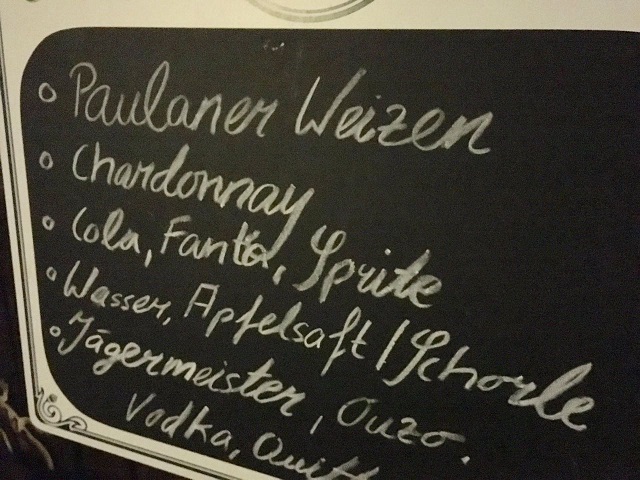 Paulaner Weizen
Chardonnay
Cola, Fanta, Sprite
Wasser, Apfelsaft / Schorle
Jägermeister, Ouzo.
Vodka,